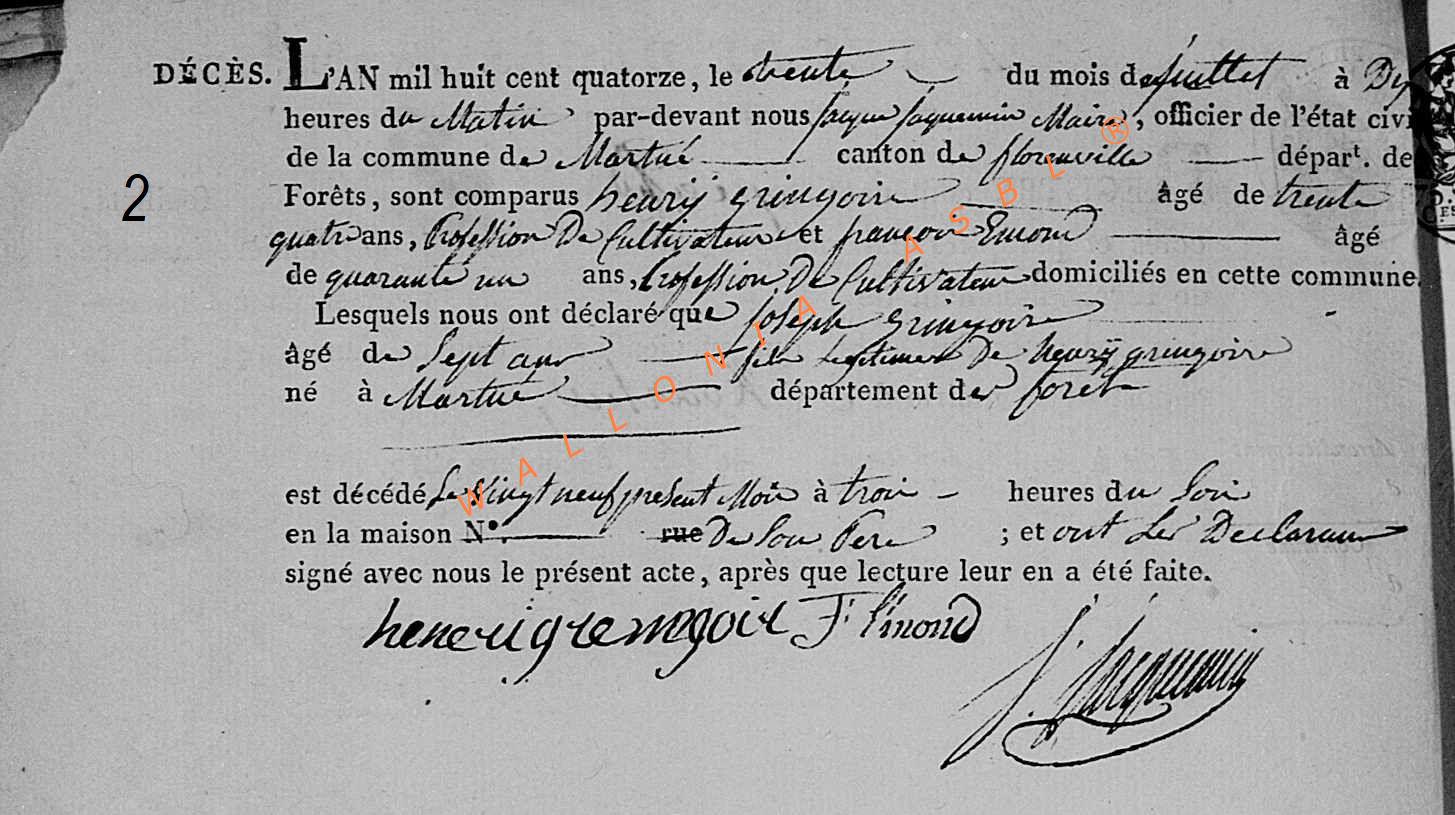 DÉCÈS. L'AN mil huit cent quatorze, le trente du mois de juillet à Dix
heures du Matin par-devant nous jacque jaquemin Maire, officier de l'état civi
de la commune de Martué canton de florenville départ. des
2
Forêts, sont comparus henrÿ gringoire âgé de trente
quatre ans, Profession De Cultivateur et françois Emond âgé
de quarante un ans, Profession De Cultivateur domiciliés en cette commune.
Lesquels nous ont déclaré que joseph gringoire
âgé de Sept ans fils legitime De henrÿ gringoire
né à Martué département des forêt
est décédé Le Vingt neuf present Mois à trois heures du Soir
en la maison N° rue De Son Pere ; et ont les Declarans
signé avec nous le présent acte, après que lecture leur en a été faite.
henerigremgoir F. Emond
J. Jacquemin
WALLONIA ASBL ®